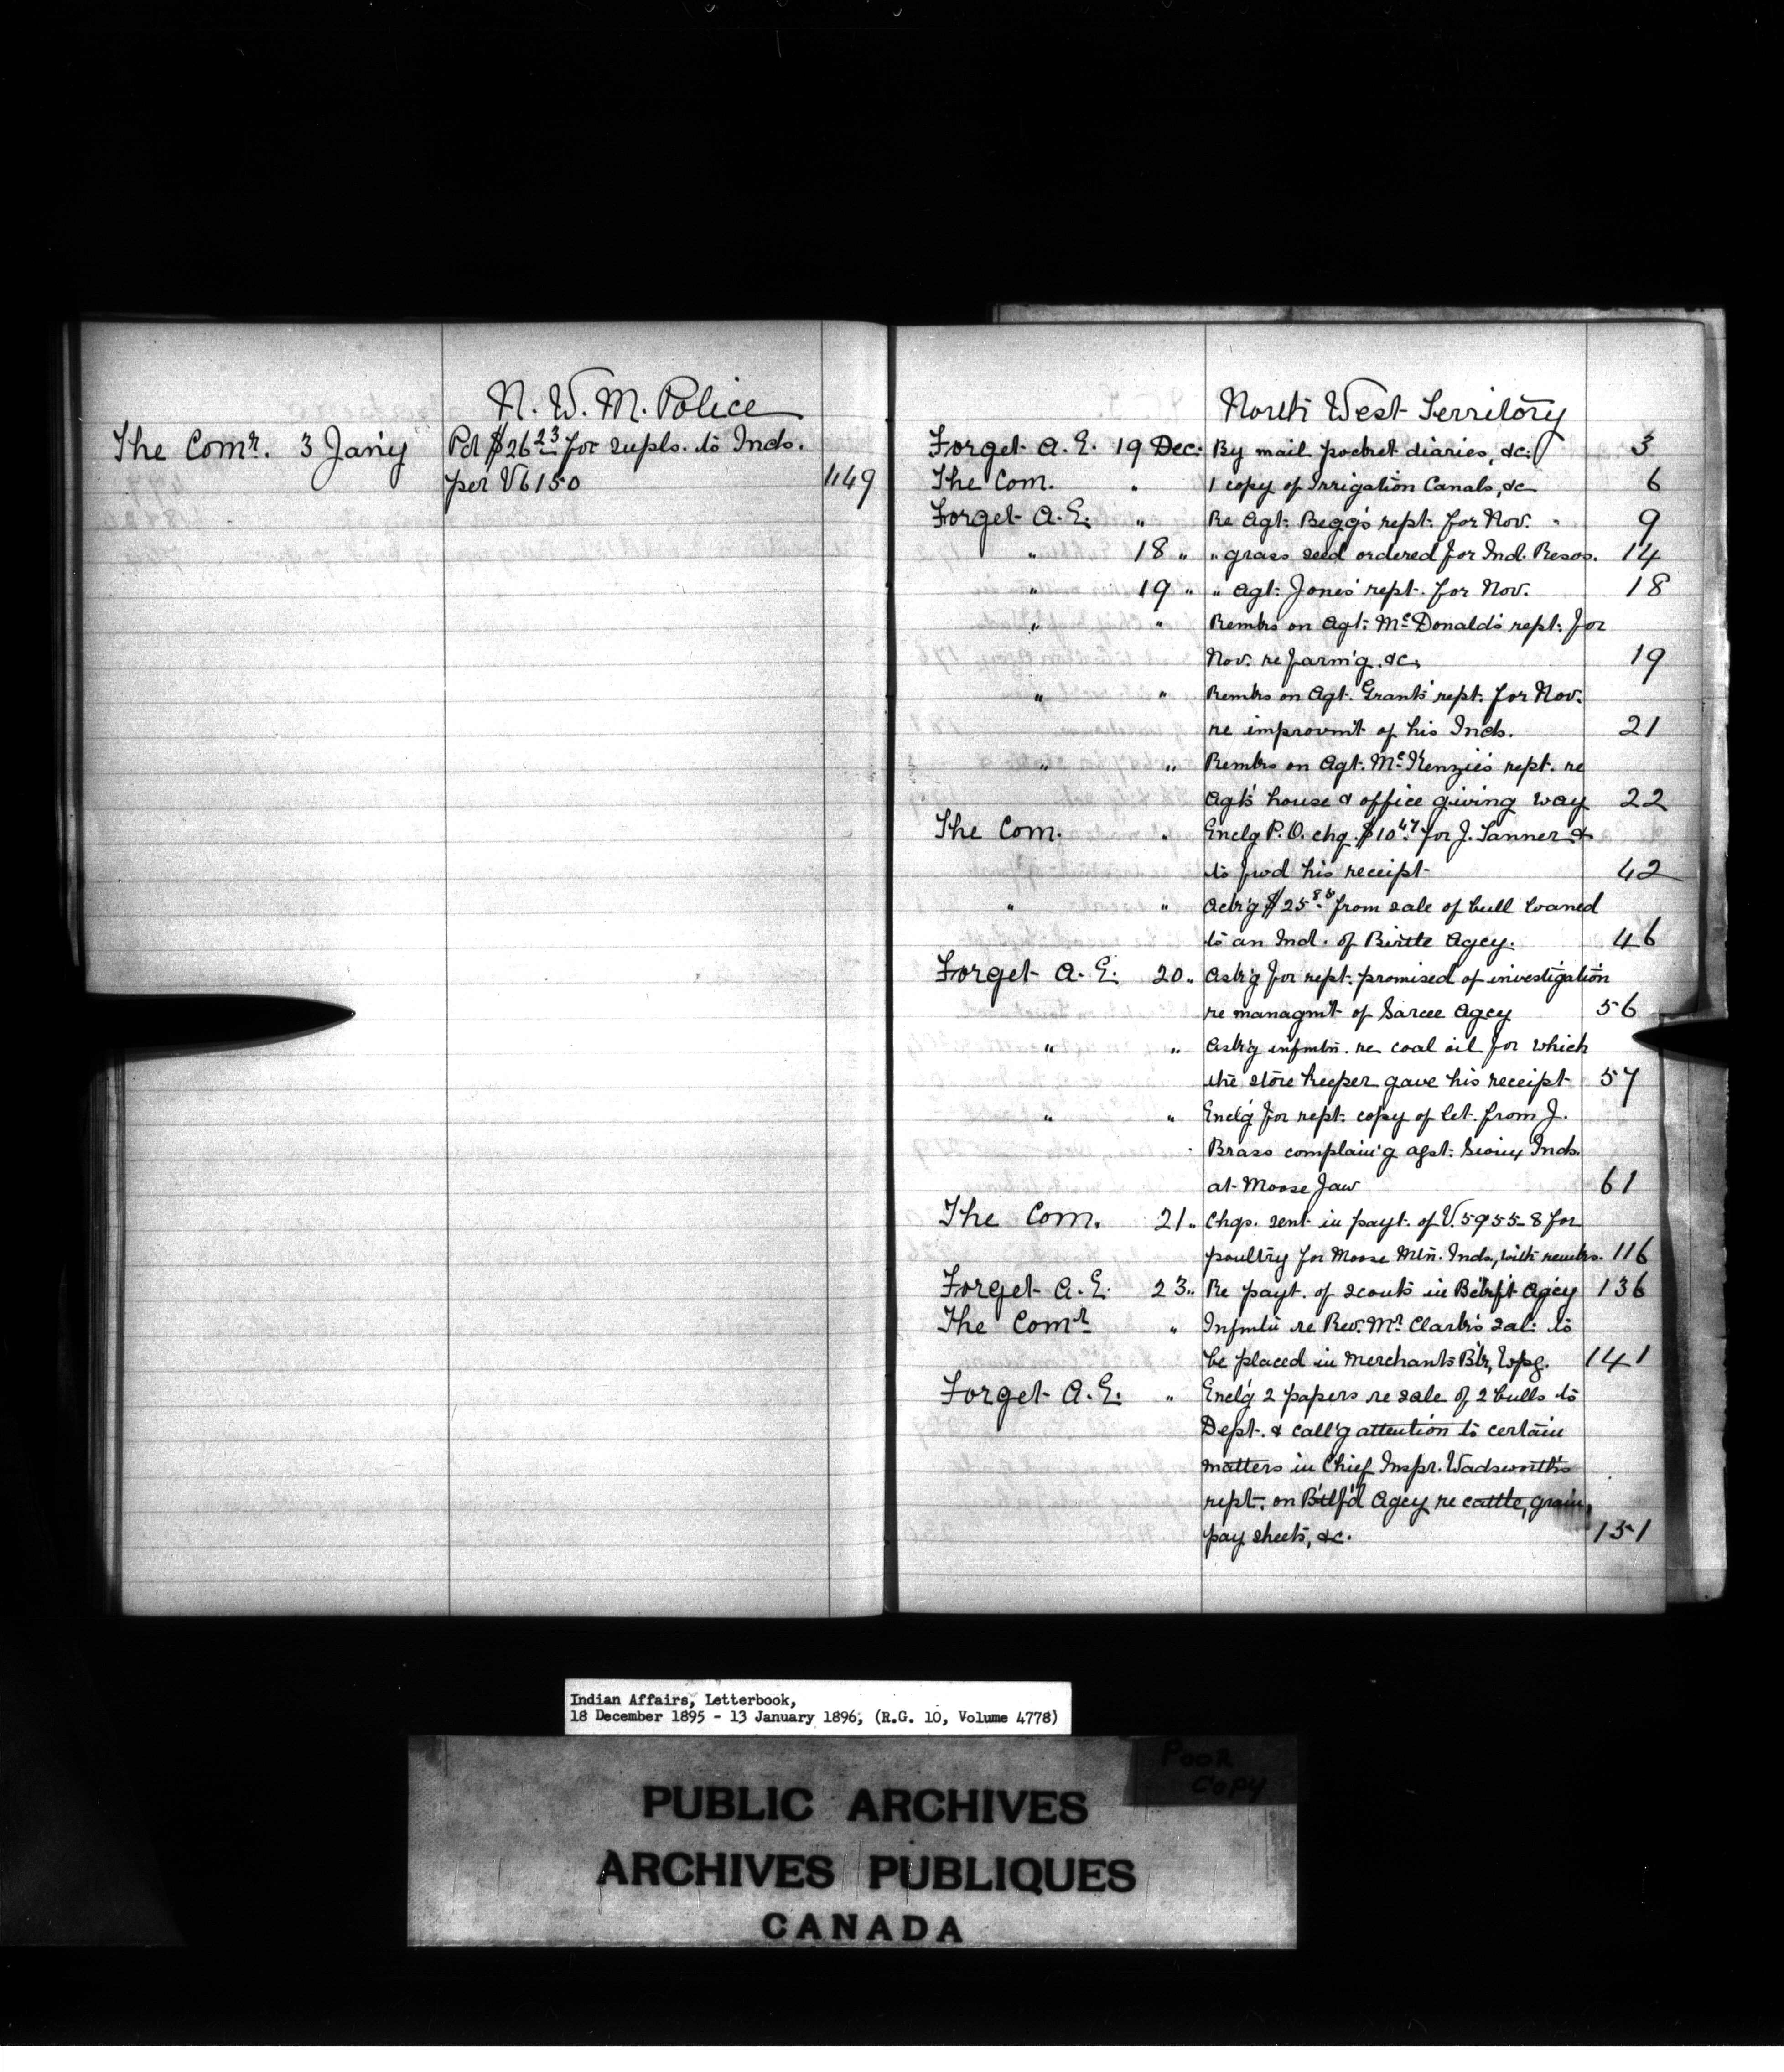 N. W. M. Police
The Comr. 3 Jan'y Pd $26 23 for supls. to Inds.
per V6150 1149
North West Territory
Forget A. E. 19 Dec: By mail pocket diaries, &c. 3
The Com. " 1 copy of Irrigation Canals, &c 6
Forget A. E. " Re Agt. Begg's rept. for Nov. " 9
" 18 " " grass seed ordered for Ind. Resos. 14
" 19 " " Agt. Jones' rept. for Nov. 18
" " Remks on Agt. McDonald's rept. for
Nov. re farm'g, &c. 19
" " Remks on Agt. Grant's rept. for Nov.
re improvmt of his Inds. 21
" " Remks on Agt. McKenzie's rept. re
Agt's house & office giving way 22
The Com. " Enclg P. O. chq. $10.47 for J. Tanner &
to fwd his receipt 42
" " Ackn'g $25.88 from sale of bull loaned
to an Ind. of Birtle Agcy. 46
Forget A. E. 20 " Ask'g for rept. promised of investigation
re managmt of Sarcee Agcy 56
" " Ask'g infmtn. re coal oil for which
the store keeper gave his receipt 57
" " Encl'g for rept. copy of let. from J.
Brass complain'g agst. Sioux Inds.
at Moose Jaw 61
The Com. 21 " Chqs. sent in payt. of V. 5955-8 for
poultry for Moose Mtn. Inds., with remks. 116
Forget A. E. 23 " Re payt. of scouts in Agcy 136
The Comr " Infmtn re Rev. Mr Clark's sal. to
be placed in Merchants Bk, Wpg. 141
Forget A. E. " Encl'g 2 papers re sale of 2 bulls to
Dept. & call'g attention to certain
matters in Chief Inspr. Wadsworth's
rept. on Agcy re cattle, grain,
pay sheets, &c. 151
Indian Affairs, Letterbook,
18 December 1895 - 13 January 1896, (R.G. 10, Volume 4778)
POOR
COPY
PUBLIC ARCHIVES
ARCHIVES PUBLIQUES
CANADA